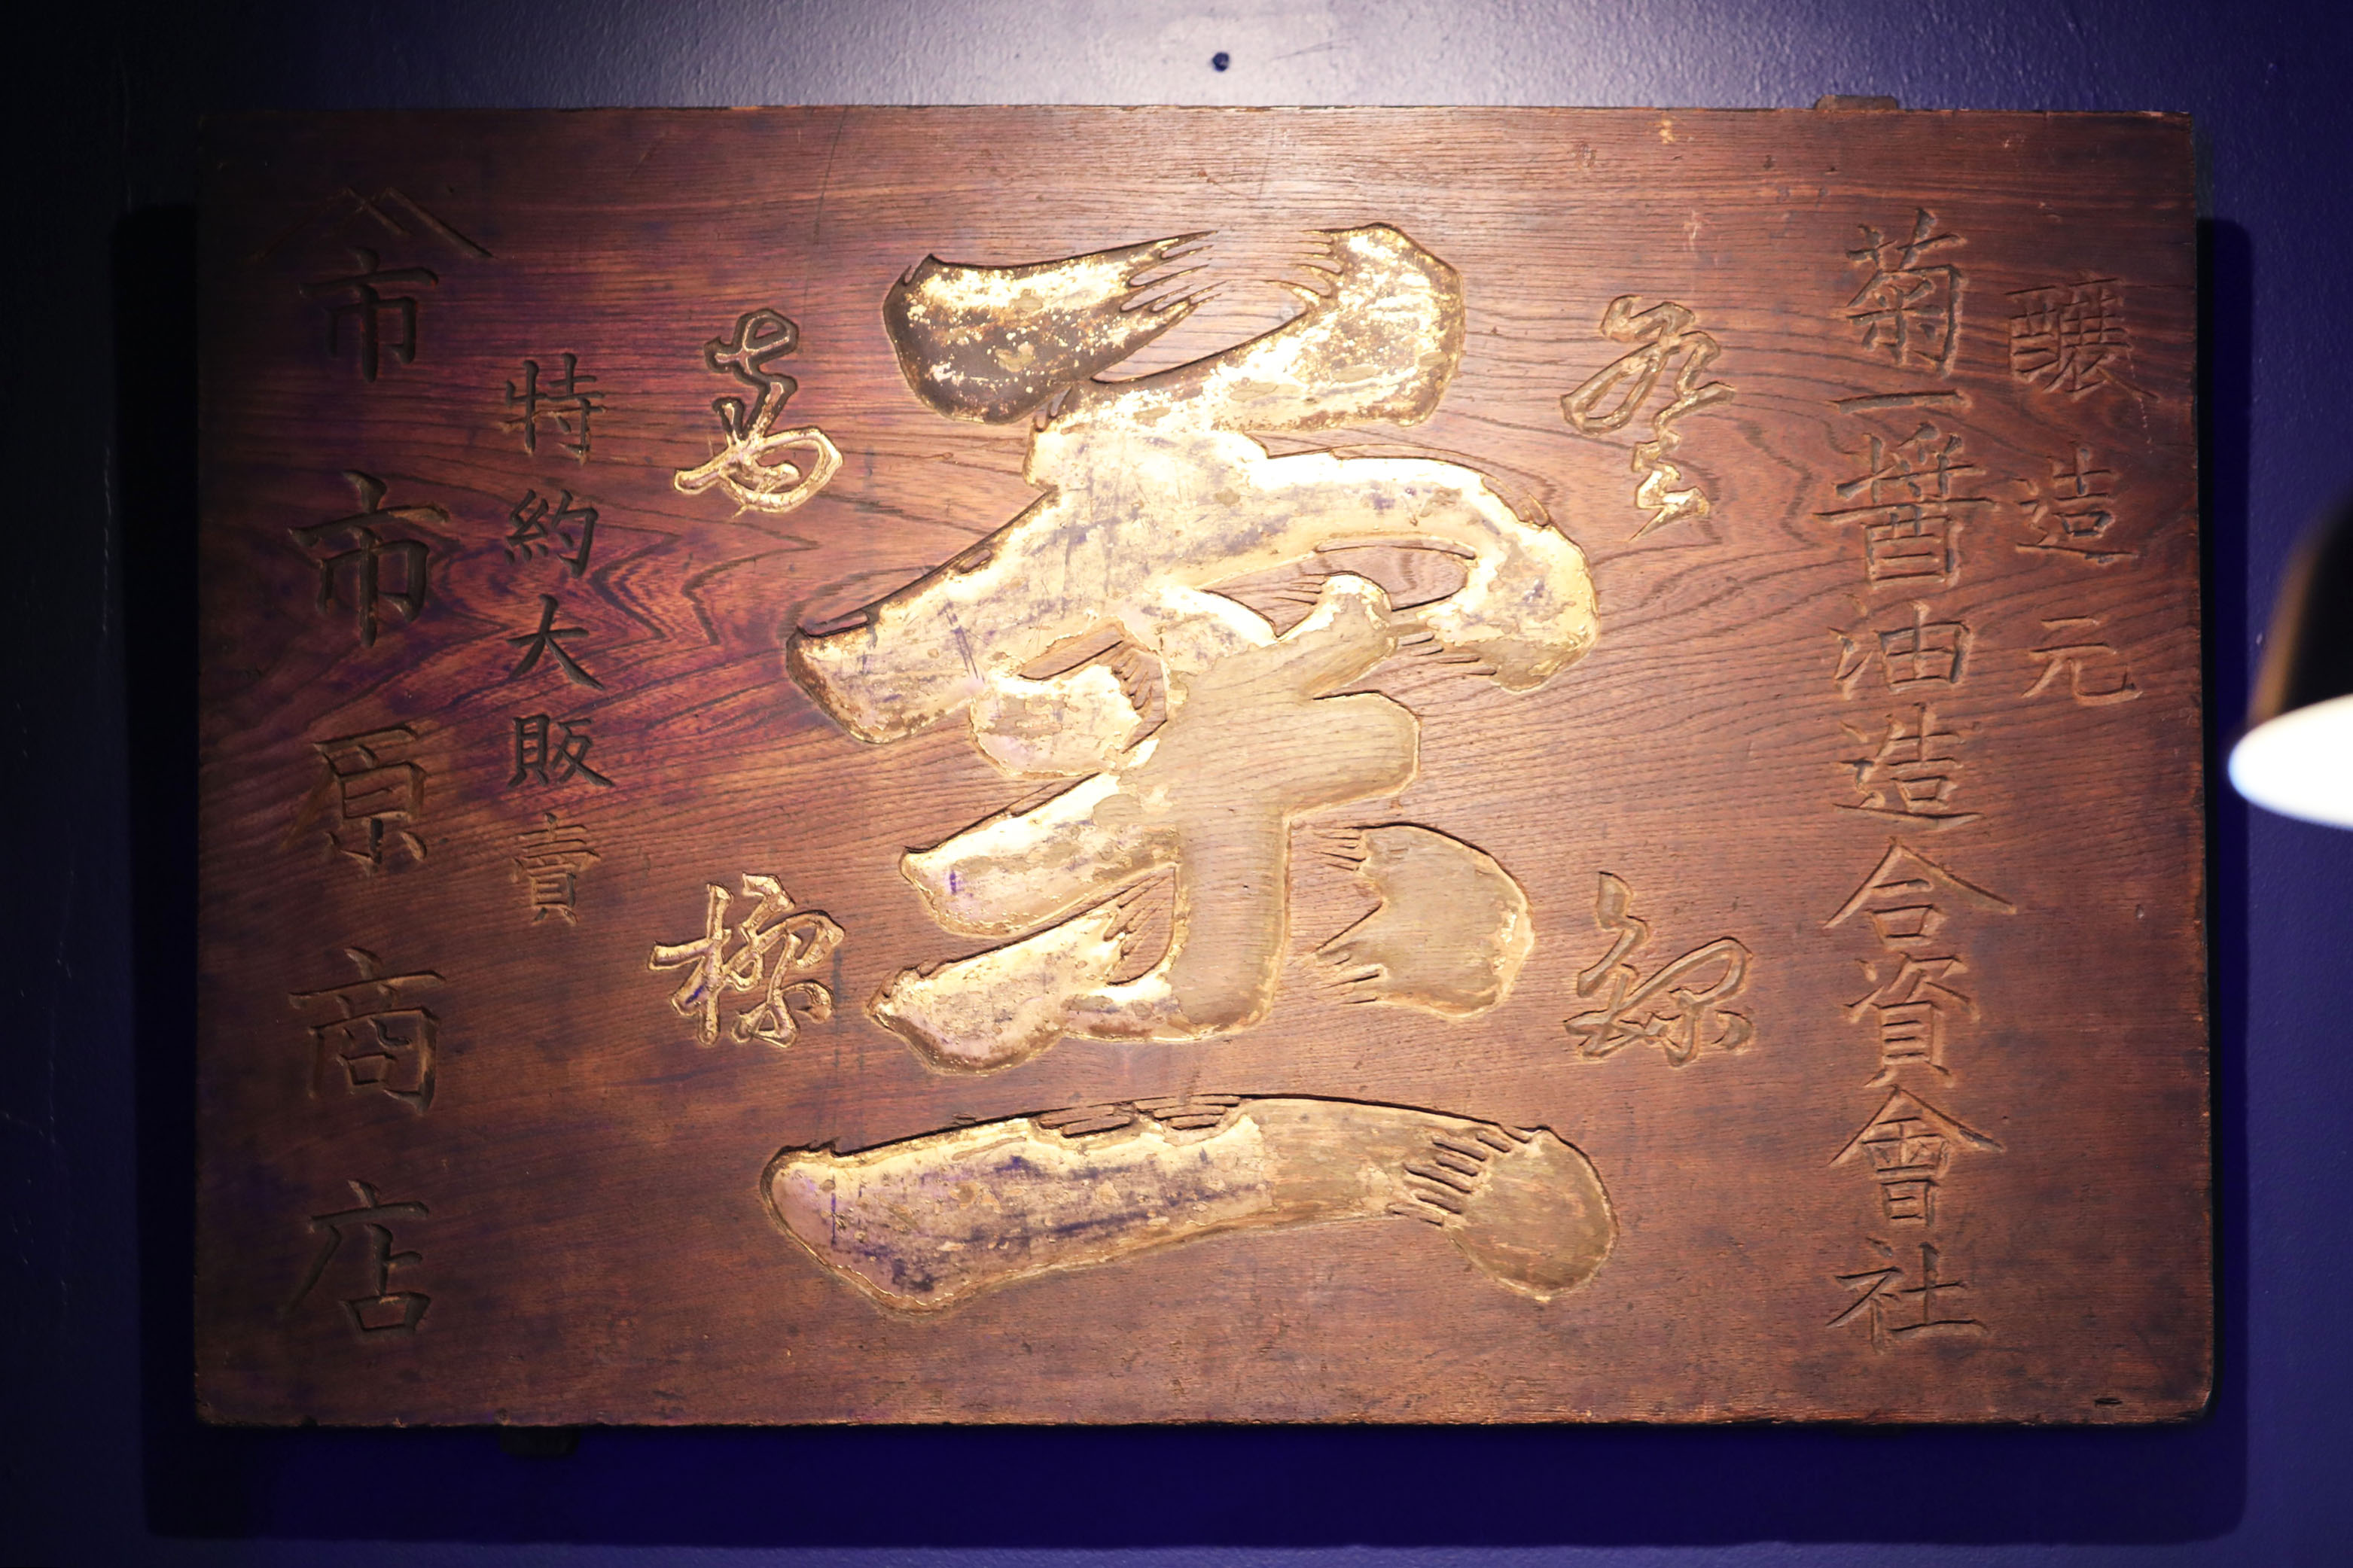 醸造元
菊一醤油造合資會社
登録
菊一
商標
特約大販賣
市
市原商店